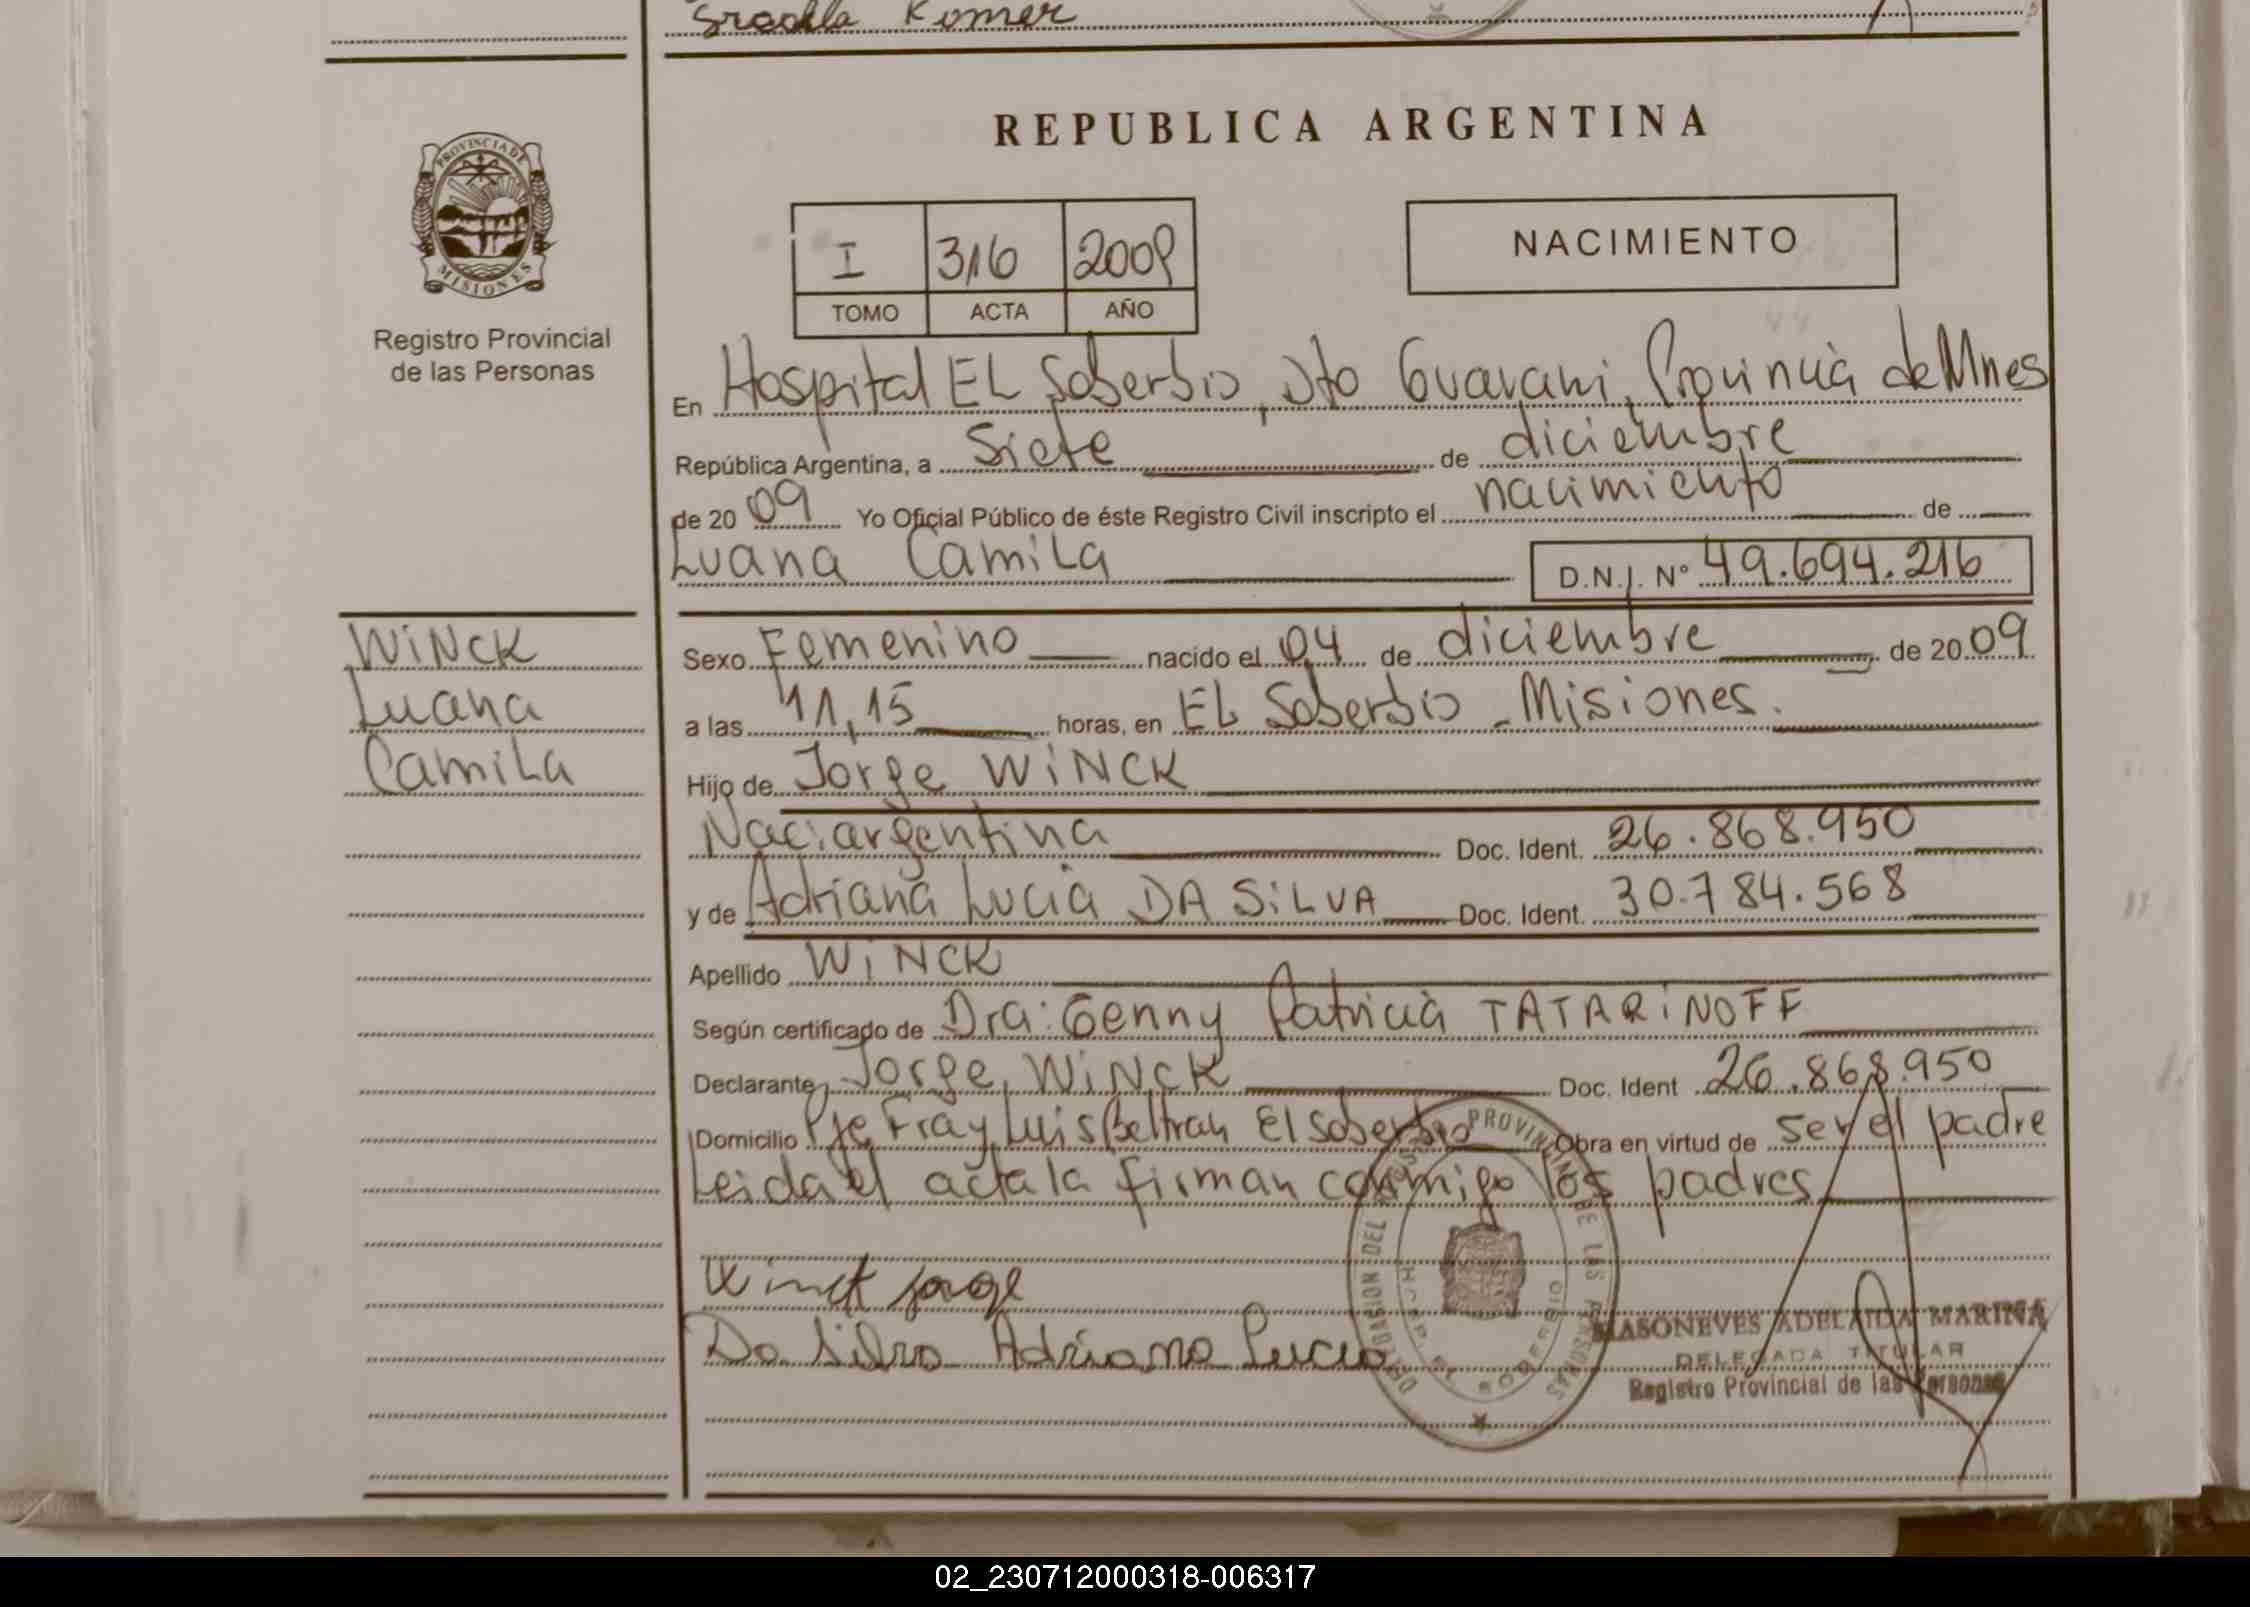 REPUBLICA ARGENTINA
PROVINCIA DE
MISIONES
Registro Provincial
de las Personas
I 316 2009
TOMO ACTA AÑO
NACIMIENTO
En Hospital EL Soberbio, Dto Guarani, Provincia de Mnes
República Argentina, a Siete de diciembre
de 2009 Yo Oficial Público de éste Registro Civil inscripto el nacimiento de
Luana Camila D.N.I. Nº 49.694.216
WINCK
Luana
Camila
Sexo Femenino nacido el 04 de diciembre de 2009
a las 11,15 horas, en EL Soberbio - Misiones.
Hijo de Jorge WINCK
Nac: argentina Doc. Ident. 26.868.950
y de Adriana Lucia DA SILVA Doc. Ident. 30.784.568
Apellido WINCK
Según certificado de Dra: Genny Patricia TATARINOFF
Declarante Jorge WINCK Doc. Ident 26.868.950
Domicilio Pje Fray Luis Beltran El Soberbio Obra en virtud de ser el padre
Leida el acta la firman conmigo los padres
Winck Jorge
Da Silva Adriana Lucia
MASONEVES ADELAIDA MARINA
DELEGADA TITULAR
Registro Provincial de las Personas
02_230712000318-006317